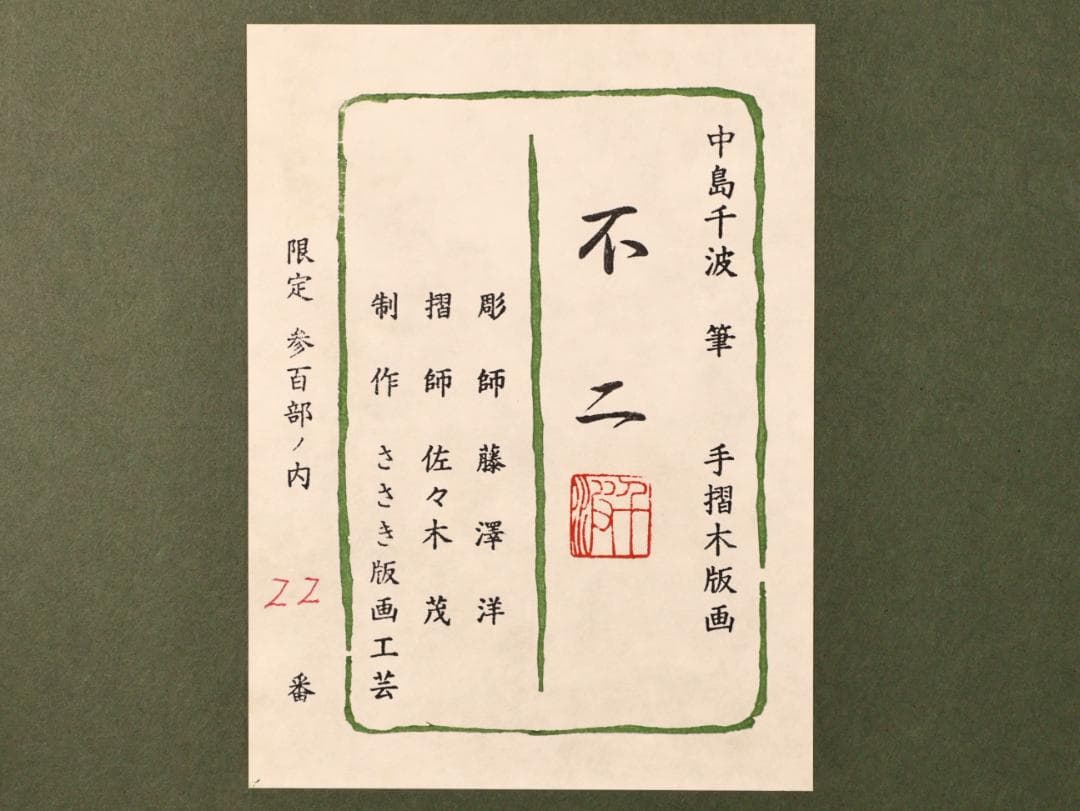 中島千波 筆 手摺木版画
不二
千波
彫師 藤澤洋
摺師 佐々木茂
制作 ささき版画工芸
限定 参百部ノ内 22 番